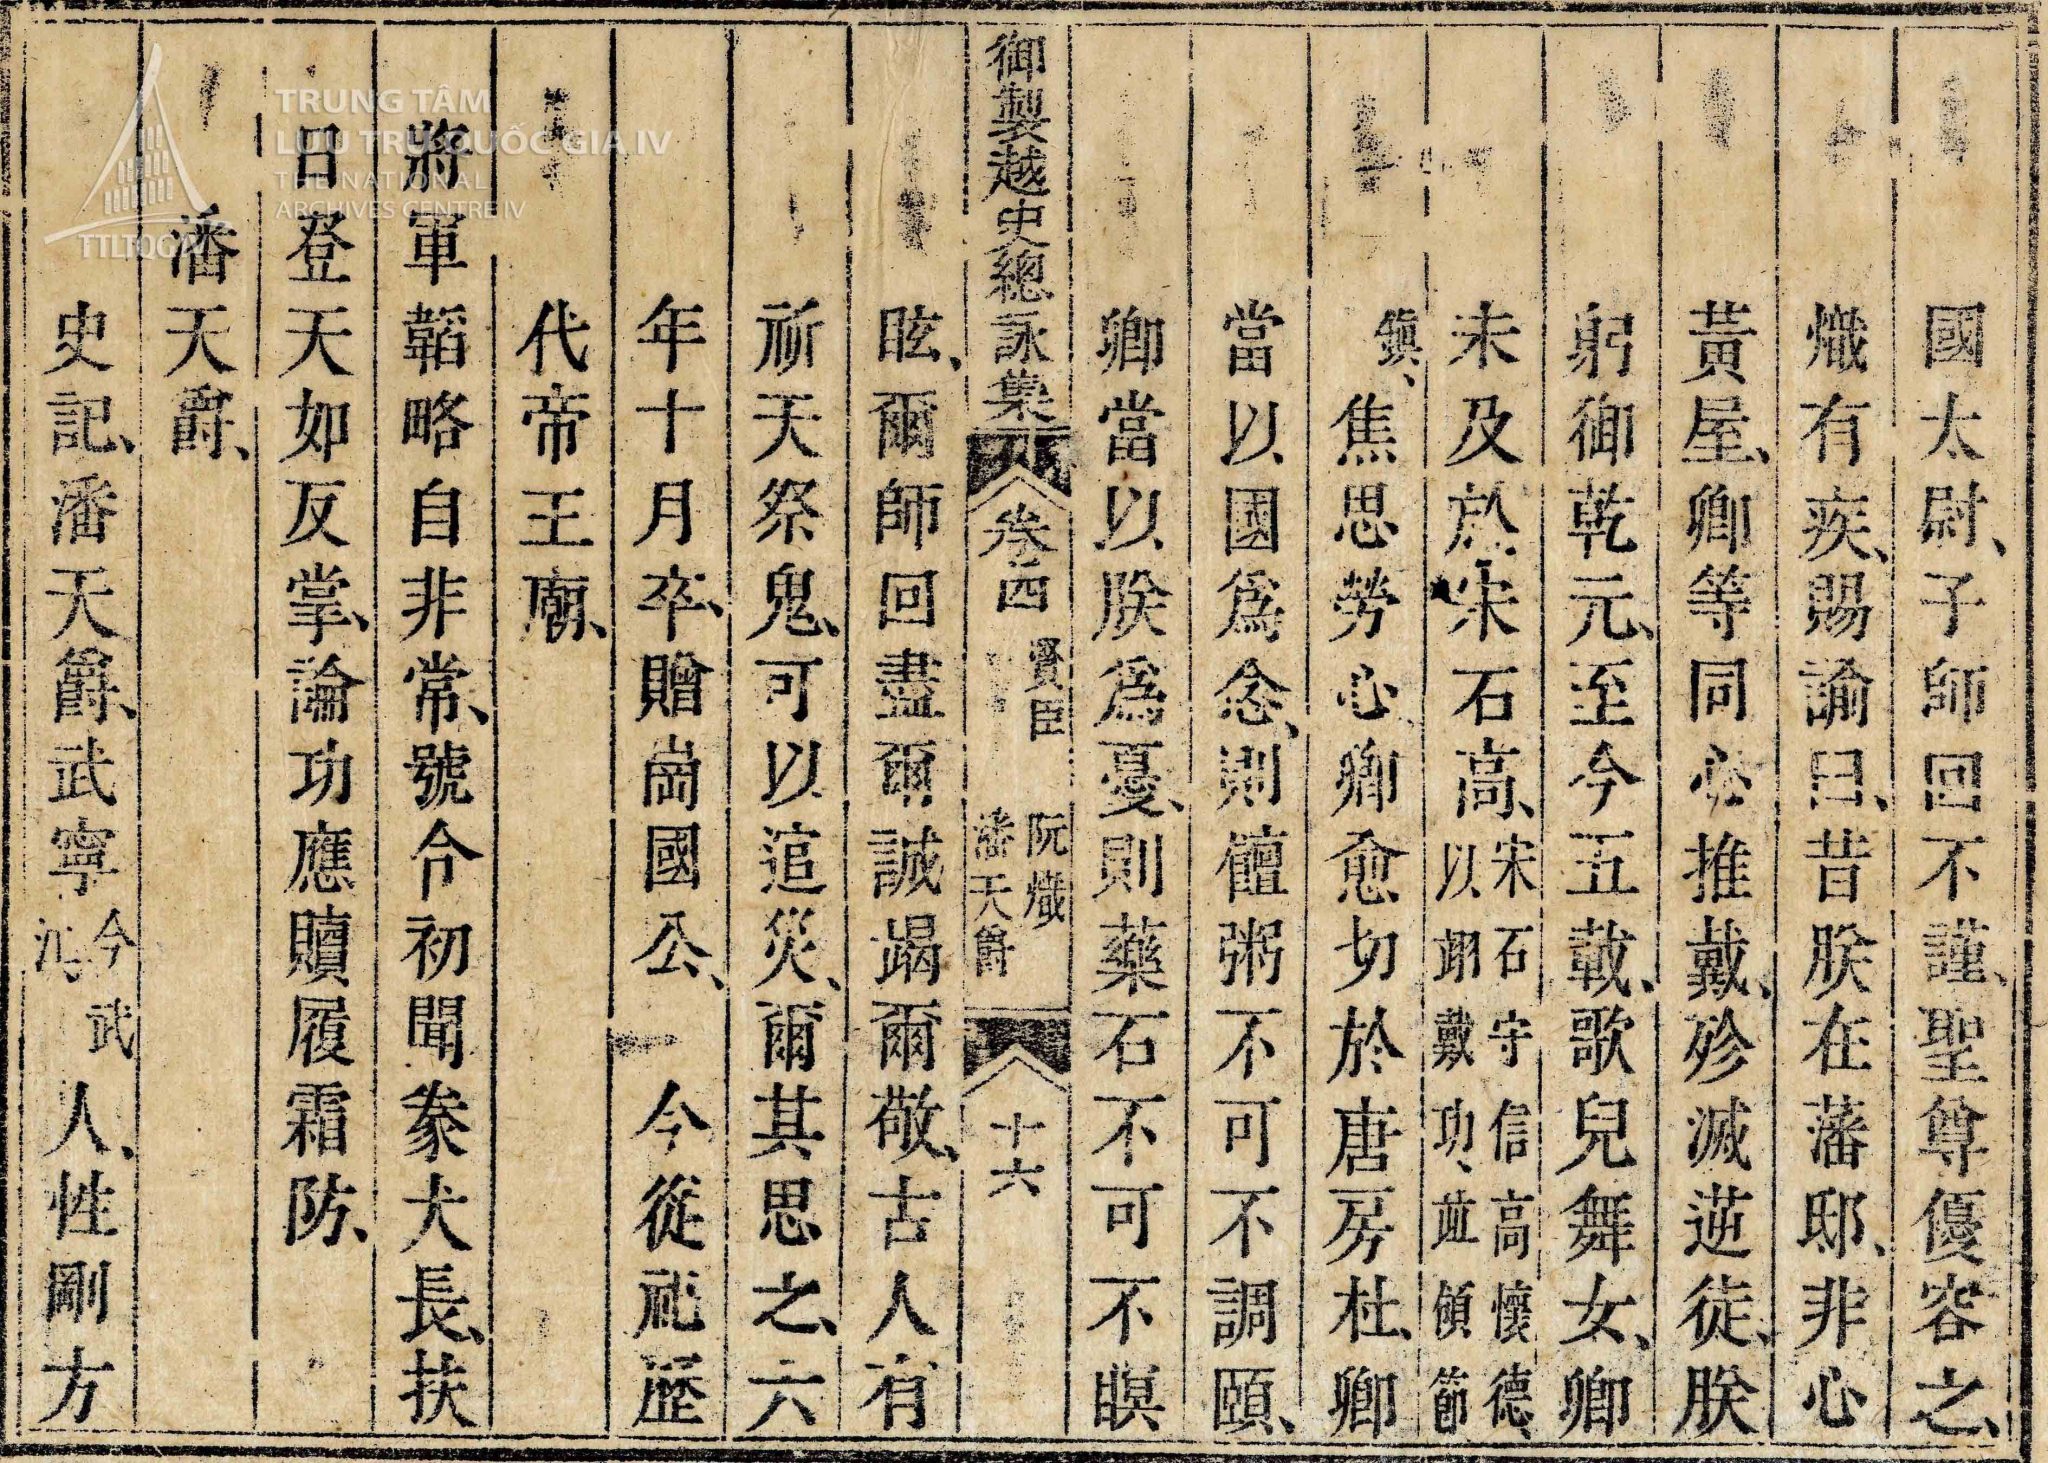 國太尉、子師回不謹、聖尊優容之、
熾有疾、賜諭曰、昔朕在藩邸、非心
黃屋、卿等同心推戴、殄滅逆徒、朕
躬御乾元、至今五載、歌兒舞女、卿
未及於宋石高、宋石守信高懷德、以翊戴功、並領節
鎮、焦思勞心、卿愈切於唐房杜、卿
當以國爲念、則饘粥不可不調頤、
卿當以朕爲憂、則藥石不可不瞑
御製越史總詠集 卷四 賢臣 阮熾 潘天爵 十六
眩、爾師回盡爾誠竭爾敬、古人有
祈天祭鬼、可以逭災、爾其思之、六
年十月卒、贈崗國公、 今從祀歷
代帝王廟、
將軍韜略自非常、號令初聞豢犬長、扶
日登天如反掌、論功應贖履霜防、
潘天爵、
史記、潘天爵、武寧今武江、人、性剛方
TRUNG TÂM
LƯU TRỮ QUỐC GIA IV
THE NATIONAL
ARCHIVES CENTRE IV
TTLTQGIV